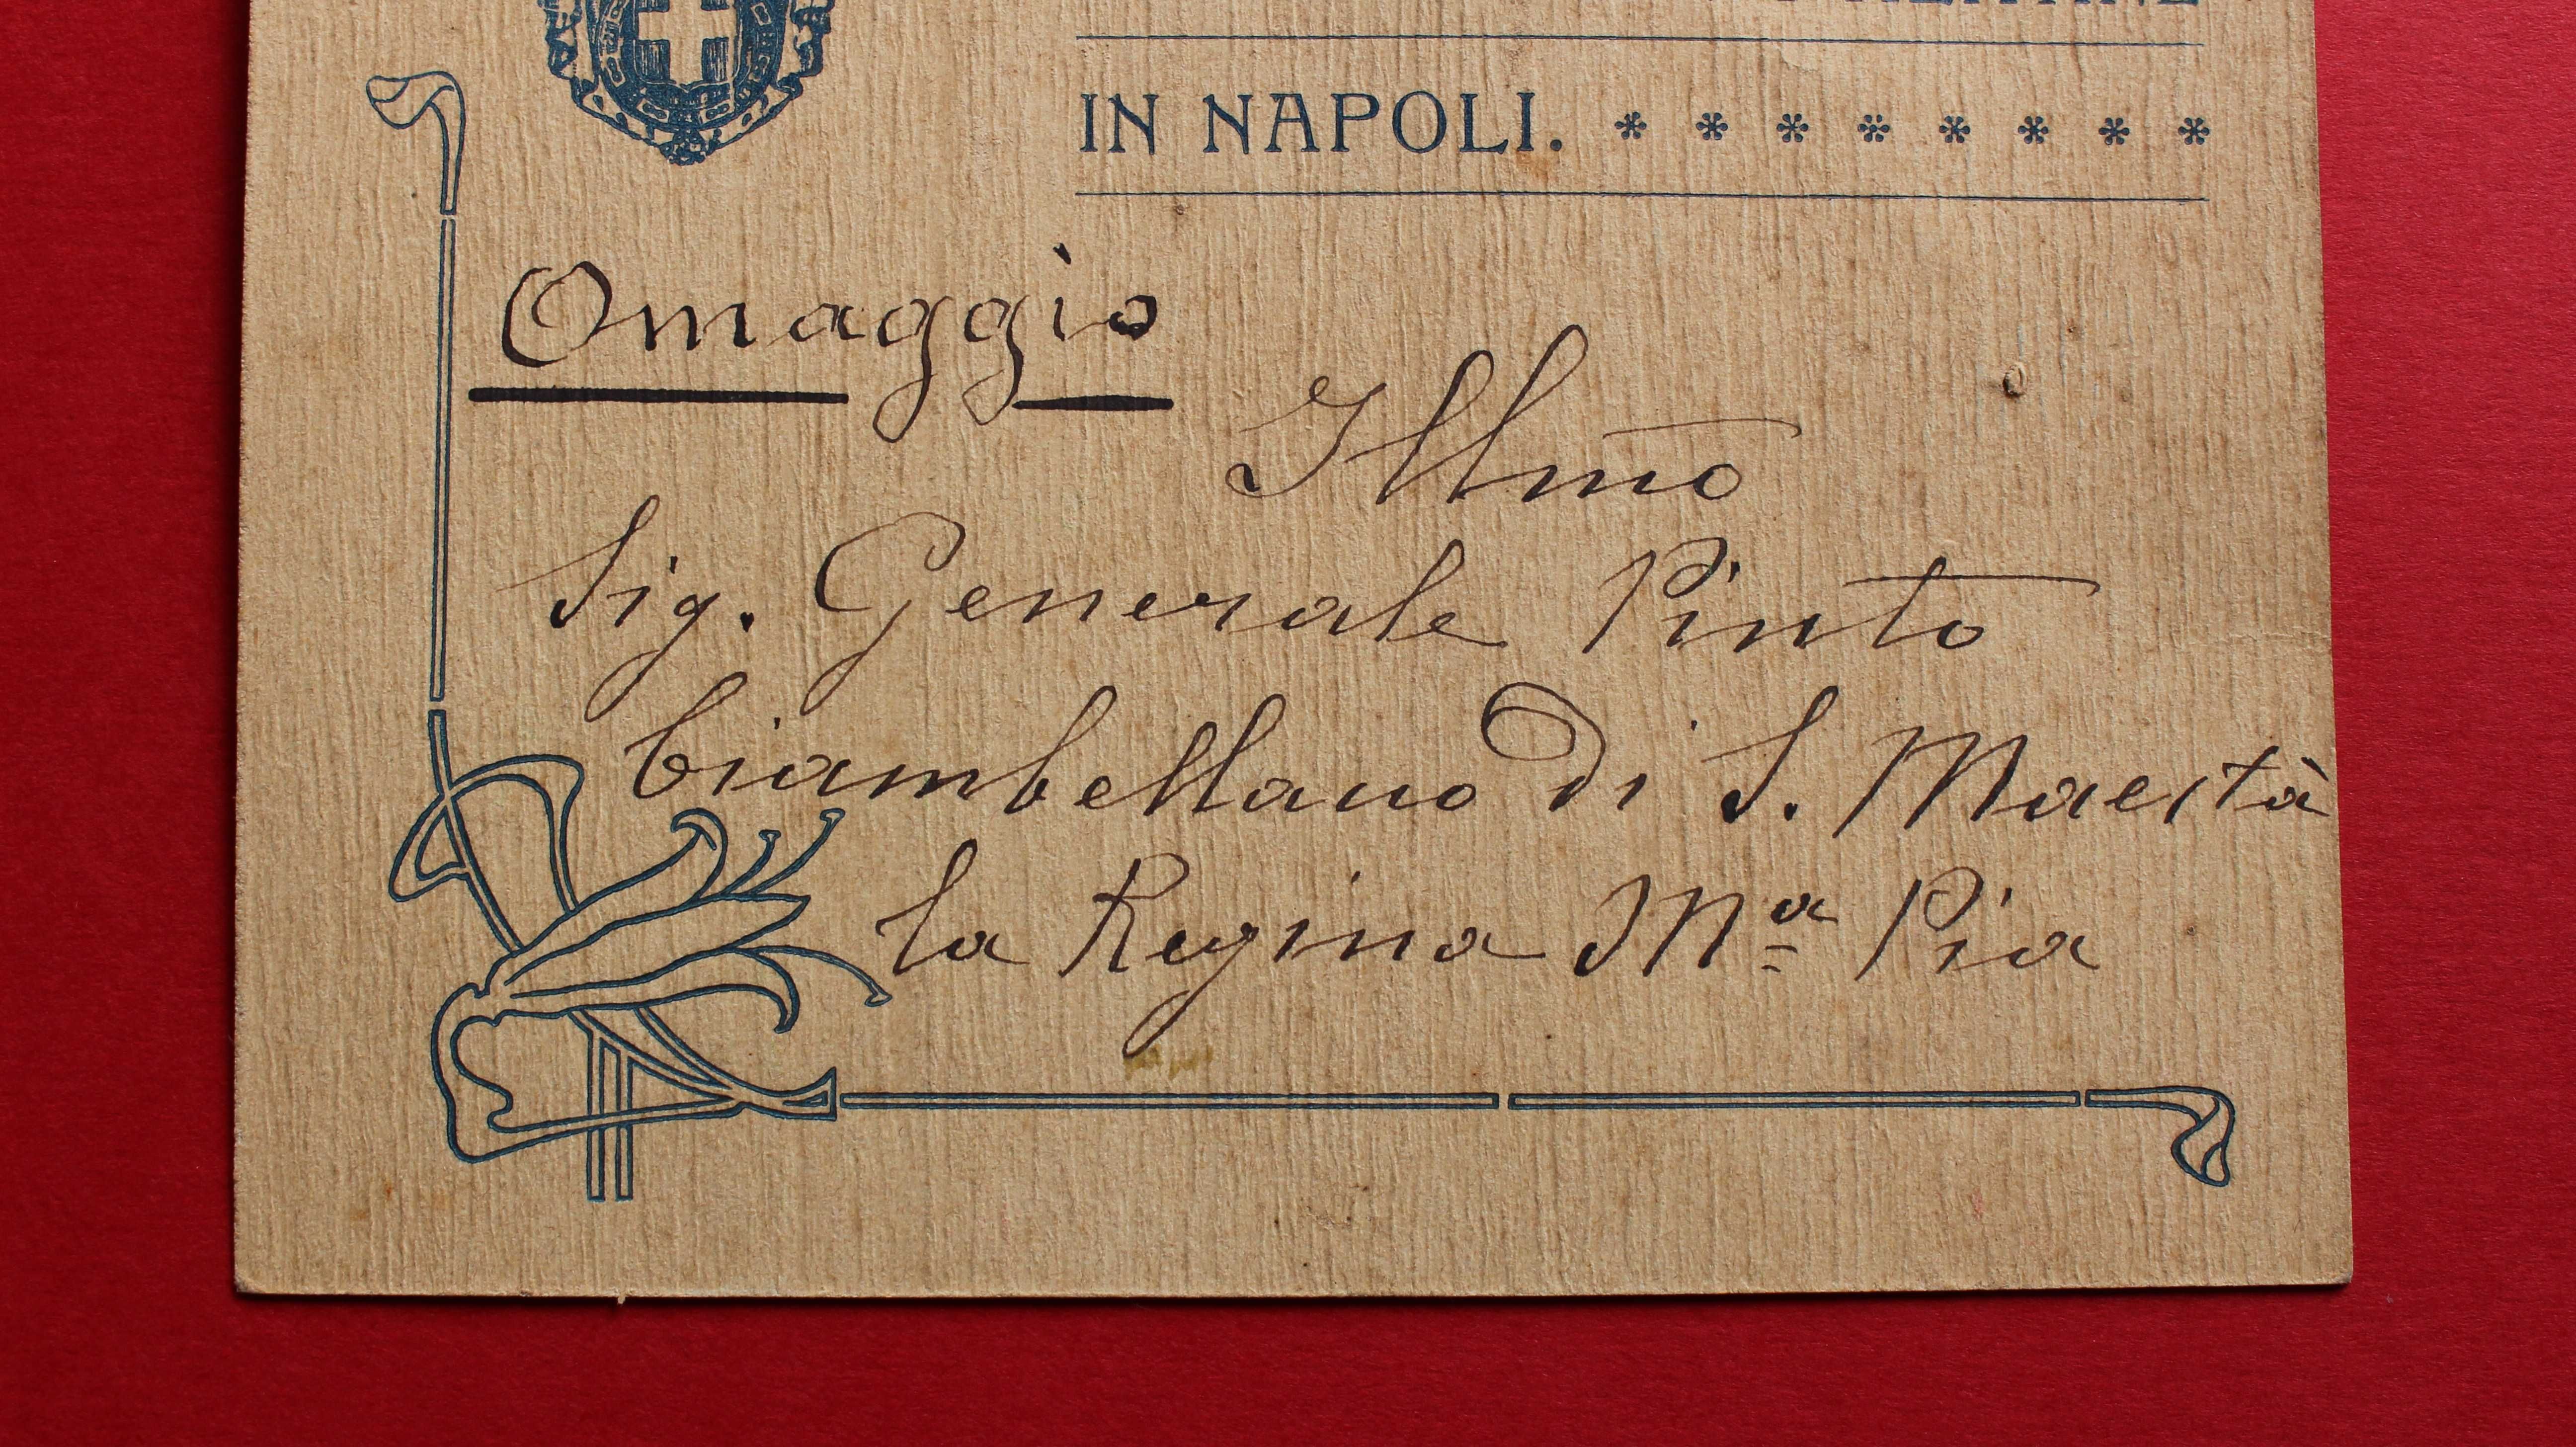 IN NAPOLI. * * * * * * * *
Omaggio
Illmo
Sig. Generale Pinto
Ciambellano di S. Maestà
la Regina Mª Pia